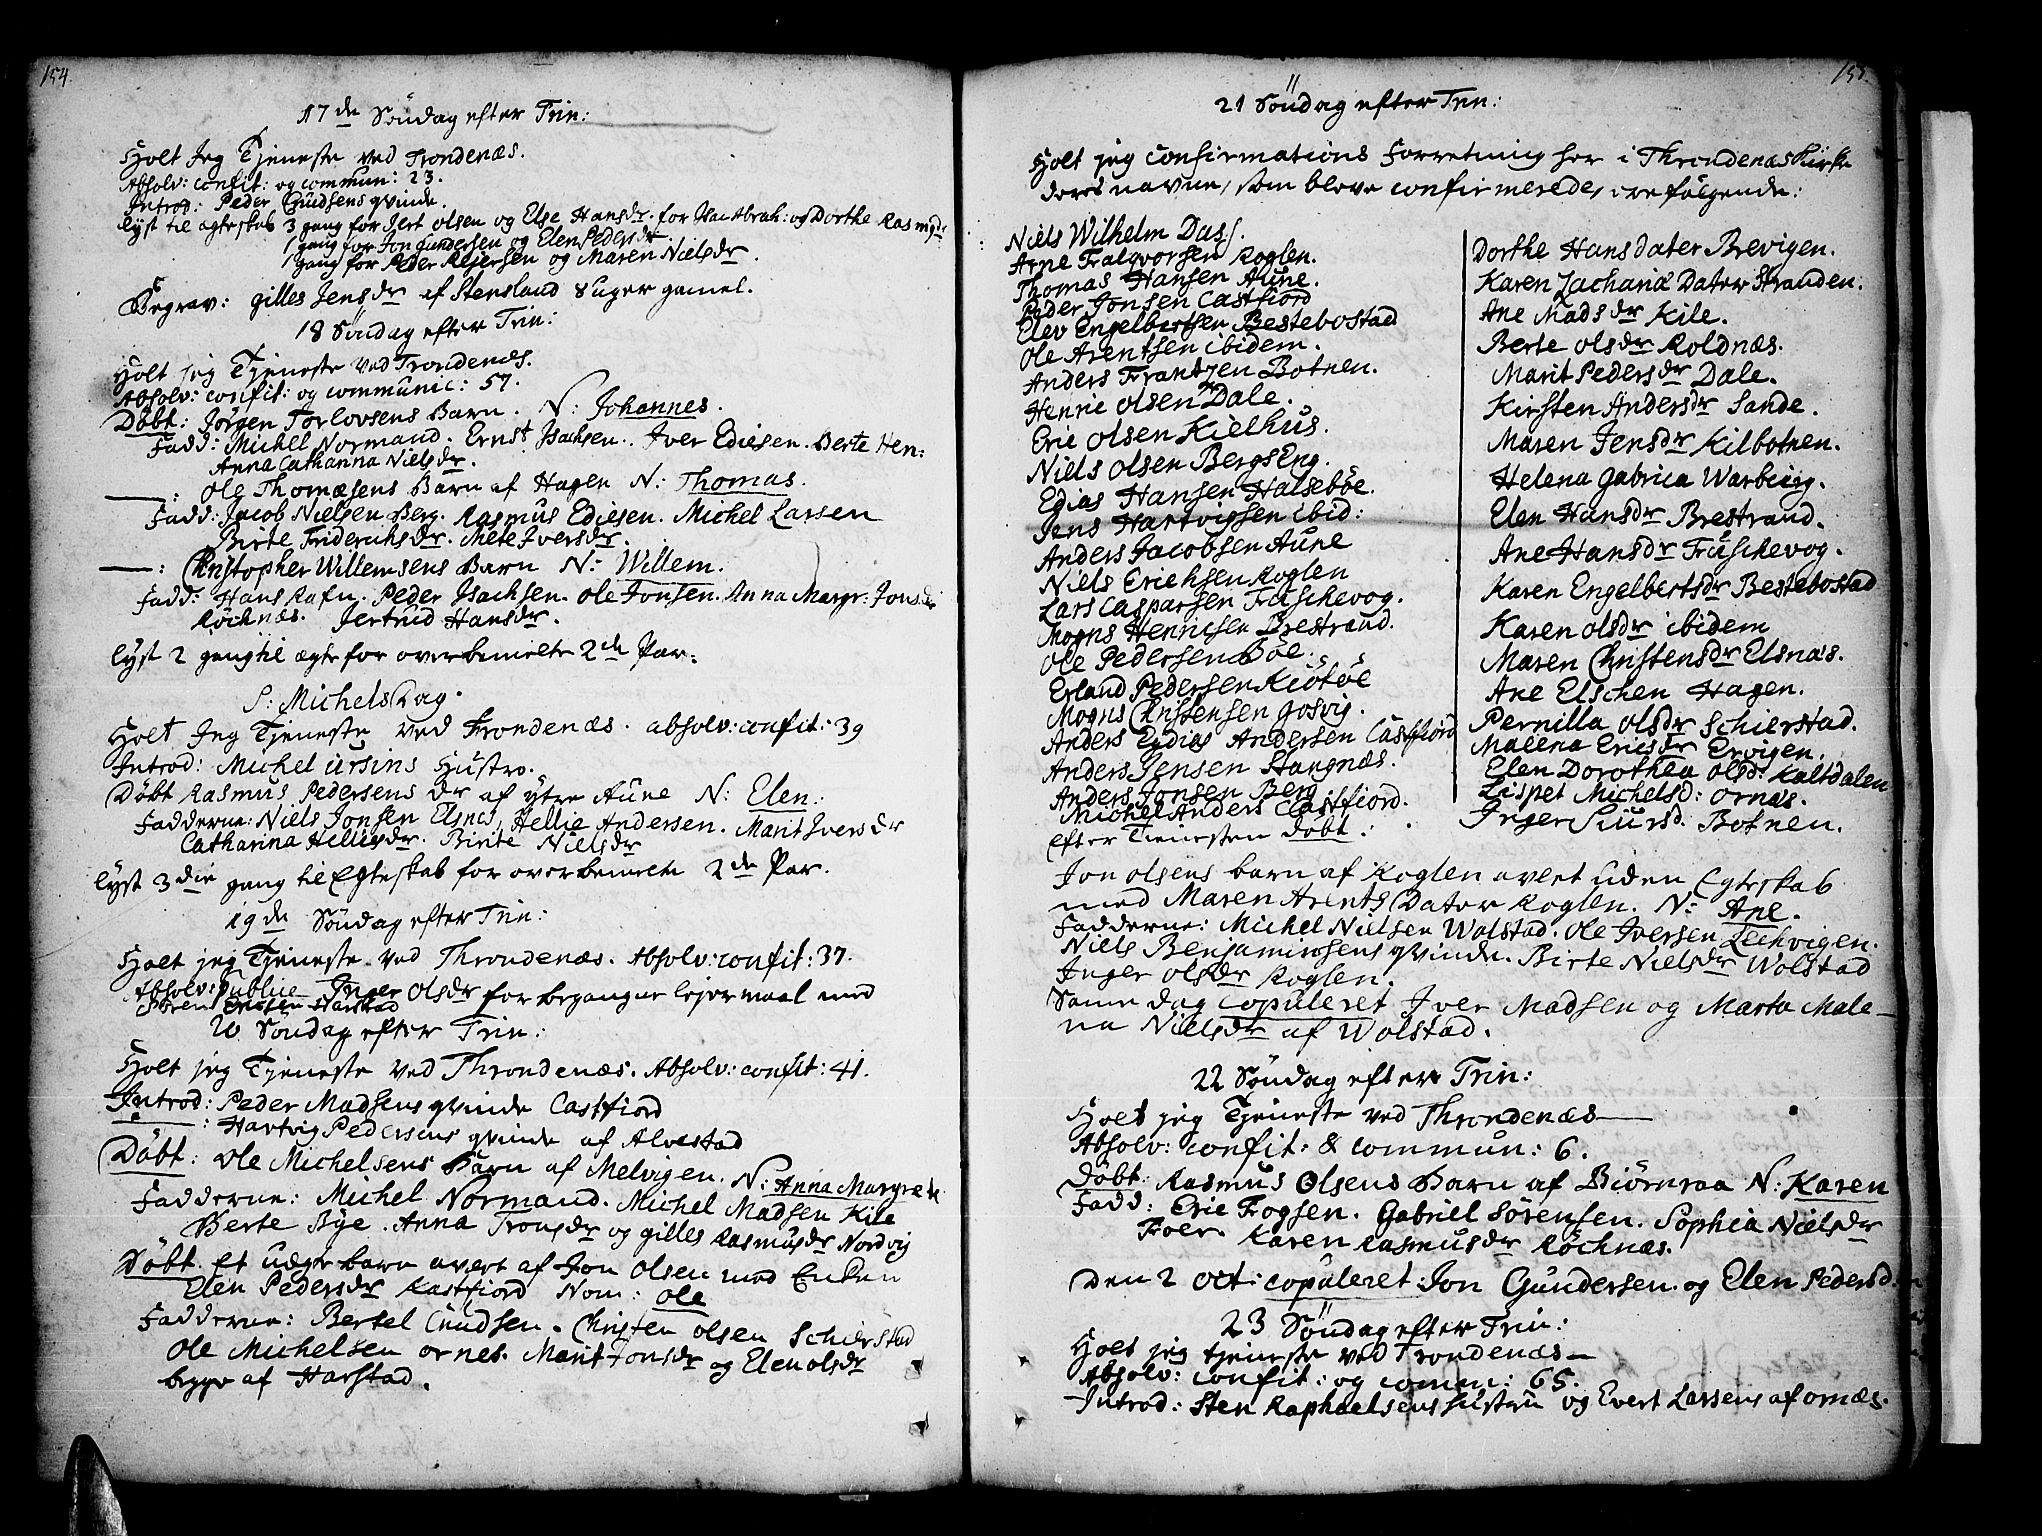 154.
17de Søndag efter Trin:
Holt Jeg Tjeneste ved Trondenæs.
Absolv: confit: og commun: 23.
Introd: Peder Cnudsens qvinde.
lyst til ægteskab 3 gang for Jert Olsen og Else Hansdr. for Isac Abrah: og Dorthe Rasmusdr
1 gang for Jon Gundersen og Elen Pedersdr
1 gang for Peder Rejersen og Maren Nielsdr.
Begrav: gilles Jensdr af Stensland 8 uger gamel.
18 Søndag efter Trin:
Holt jeg Tjeneste ved Trondenæs.
Absolv: confit: og communic: 57.
Døbt: Jørgen Torlovsens Barn. N: Johannes.
Fadd: Michel Normand. Ernst Isachsen. Iver Ediesen. Berte Hen:
Anna Catharina Nielsdr.
——: Ole Thomæsens Barn af Hagen N: Thomas.
Fadd: Jacob Nielsen Berg. Rasmus Ediesen. Michel Larsen
Birte Friderichsdr. Mete Iversdr.
——: Christopher Willemsens Barn N: Willem.
Fadd: Hans Rafn. Peder Isachsen. Ole Jonsen. Anna Margr: Jonsdr
Røchnæs. Jertrud Hansdr.
lyst 2 gang til ægte for overbemelte 2de Par.
S: Michels Dag.
Holt Jeg Tjeneste ved Trondenæs. absolv: confit: 39
Introd: Michel Ursins Hustro.
Døbt Rasmus Pedersens dr af ytre Aune N: Elen.
Fadderne: Niels Jonsen Elsnes, Hellie Andersen. Marit Iversdr
Catharina Hellisdr. Birite Nielsdr
lyst 3die gang til Egteskab for overbemelte 2de Par.
19de Søndag efter Trin:
Holt jeg Tjeneste ved Throndenæs. Absolv: confit: 37.
Absolv: publice Inger Olsdr for begangne lejermaal med
Søren Harstad
20 Søndag efter Trin:
Holt jeg Tjeneste ved Throndenæs. Absolv: confit: 41.
Introd: Peder Madsens qvinde Castfiord
——: Hartvig Pedersens qvinde af Alvestad
Døbt: Ole Michelsens Barn af Melvigen. N: Anna Margrete
Fadderne: Michel Normand. Michel Madsen Kile
Berte Bye. Anna Tronsdr og gilles Rasmusdr Nordvig
Døbt. Et uægte barn avert af Jon Olsen med Enken
Elen Pedersdr Kastfiord Nom: Ole
Fadderne: Bertel Cnudsen. Christen Olsen Schierstad
Ole Michelsen ornes. Marit Jonsdr og Elen Olsdr
begge af Harstad.
155.
21 Søndag efter Trin:
Holt jeg Confirmations Forretning her i Throndenæs Kirke
deres navne, som bleve confirmerede, ere følgende:
Niels Wilhelm Dass.
Arne Tralvorsen Roglen.
Thomas Hansen Aune.
Peder Jonsen Castfiord
Elev Engelbertsen Bestebostad
Ole Arentsen ibidem.
Anders Frantzen Botnen.
Henric Olsen Dale.
Eric Olsen Kielhus.
Niels Olsen BergsEng.
Edias Hansen Halsebøe.
Jens Hartvigsen ibid:
Anders Jacobsen Aune
Niels Erichsen Roglen
Lars Casparsen Fuschevog.
Mogns Henricsen Brestrand.
Ole Pedersen Bøe.
Erland Pedersen Kiøtøe
Mogns Christensen Gosvig.
Anders Edias Andersen Castfiord
Anders Jensen Stangnæs.
Anders Jonsen Berg
Michel Anders Castfiord.
Dorthe Hansdater Brevigen.
Karen Zachariæ Dater Stranden.
Ane Madsdr Kile.
Berte Olsdr Roldnæs.
Marit Pedersdr Dale.
Kirsten Andersdr Sande.
Maren Jensdr Kilbotnen.
Helena Gabrica Warberg.
Elen Hansdr Brestrand.
Ane Hansdr Fuschevog.
Karen Engelbertsdr Bestebostad
Karen Olsdr ibidem
Maren Christensdr Elsnæs.
Ane Elschen Hagen.
Pernilla Olsdr Schierstad.
Malena Ericsdr Ervigen.
Elen Dorothea Olsd: Kaltdalen
Lispet Michelsd: Ornæs.
Inger Siursd. Botnen.
Efter Tienesten døbt:
Jon Olsens barn af Roglen avlet uden Egteskab
med Maren Arents Dater Roglen. N: Ane.
Fadderne: Michel Nielsen Wolstad. Ole Iversen Lechvigen.
Niels Benjaminsens qvinde. Birte Nielsdr Wolstad
Inger Olsdr Roglen.
Samme dag copuleret Iver Madsen og Marta Male-
na Nielsdr af Wolstad.
22 Søndag efter Trin:
Holt jeg Tjeneste ved Throndenæs——
Absolv: confit: & commun: 6.
Døbt: Rasmus Olsens Barn af Biørnraa N: Karen
Fadd: Eric Fogsen. Gabriel Sørensen. Sophia Nielsdr
Foer. Karen Rasmusdr Røchnæs.
Den 2 Oct: copuleret: Jon Gundersen og Elen Pedersd.
23 Søndag efter Trin:
Holt jeg tjeneste ved Trondenæs—
Absolv: confit: og comm: 65.
Introd: Sten Raphaelsens hustru og Evert Larsens af ornæs.